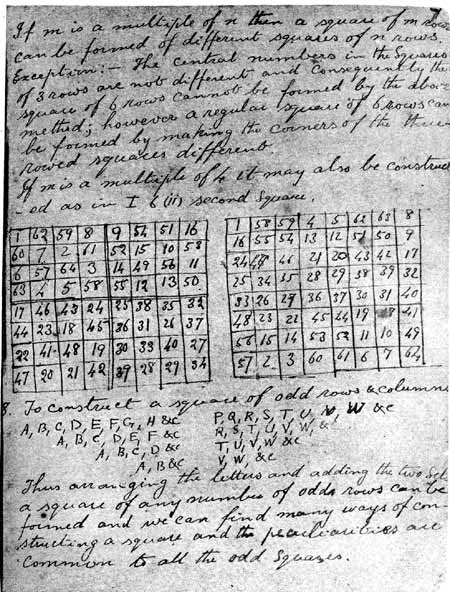 If m is a multiple of n then a square of m rows
can be formed of different squares of n rows.
Exception:— The central numbers in the squares
of 3 rows are not different and consequently the
square of 6 rows cannot be formed by the above
method; however a regular square of 6 rows can
be formed by making the corners of the three
rowed squares different
If m is a multiple of 4 it may also be construct
-ed as in I 6 (ii) second Square.
1 62 59 8 9 54 51 16
60 7 2 61 52 15 10 53
6 57 64 3 14 49 56 11
63 4 5 58 55 12 13 50
17 46 43 24 25 38 35 32
44 23 18 45 36 31 26 37
22 41 48 19 30 33 40 27
47 20 21 42 39 28 29 34
1 58 59 4 5 62 63 8
16 55 54 13 12 51 50 9
24 47 46 21 20 43 42 17
25 34 35 28 29 38 39 32
33 26 27 36 37 30 31 40
48 23 22 45 44 19 41
56 15 14 53 52 11 10 49
57 2 3 60 61 6 7 64
8. To construct a square of odd rows & columns
A, B, C, D, E, F, G, H &c P, Q, R, S, T, U, V, W &c
A, B, C, D, E, F &c R, S, T, U, V, W, &c
A, B, C, D &c T, U, V, W &c
A, B &c V, W, &c
Thus arranging the letters and adding the two sets
a square of any number of odd rows can be
formed and we can find many ways of con-
structing a square and the peculiarities are
common to all the odd Squares.